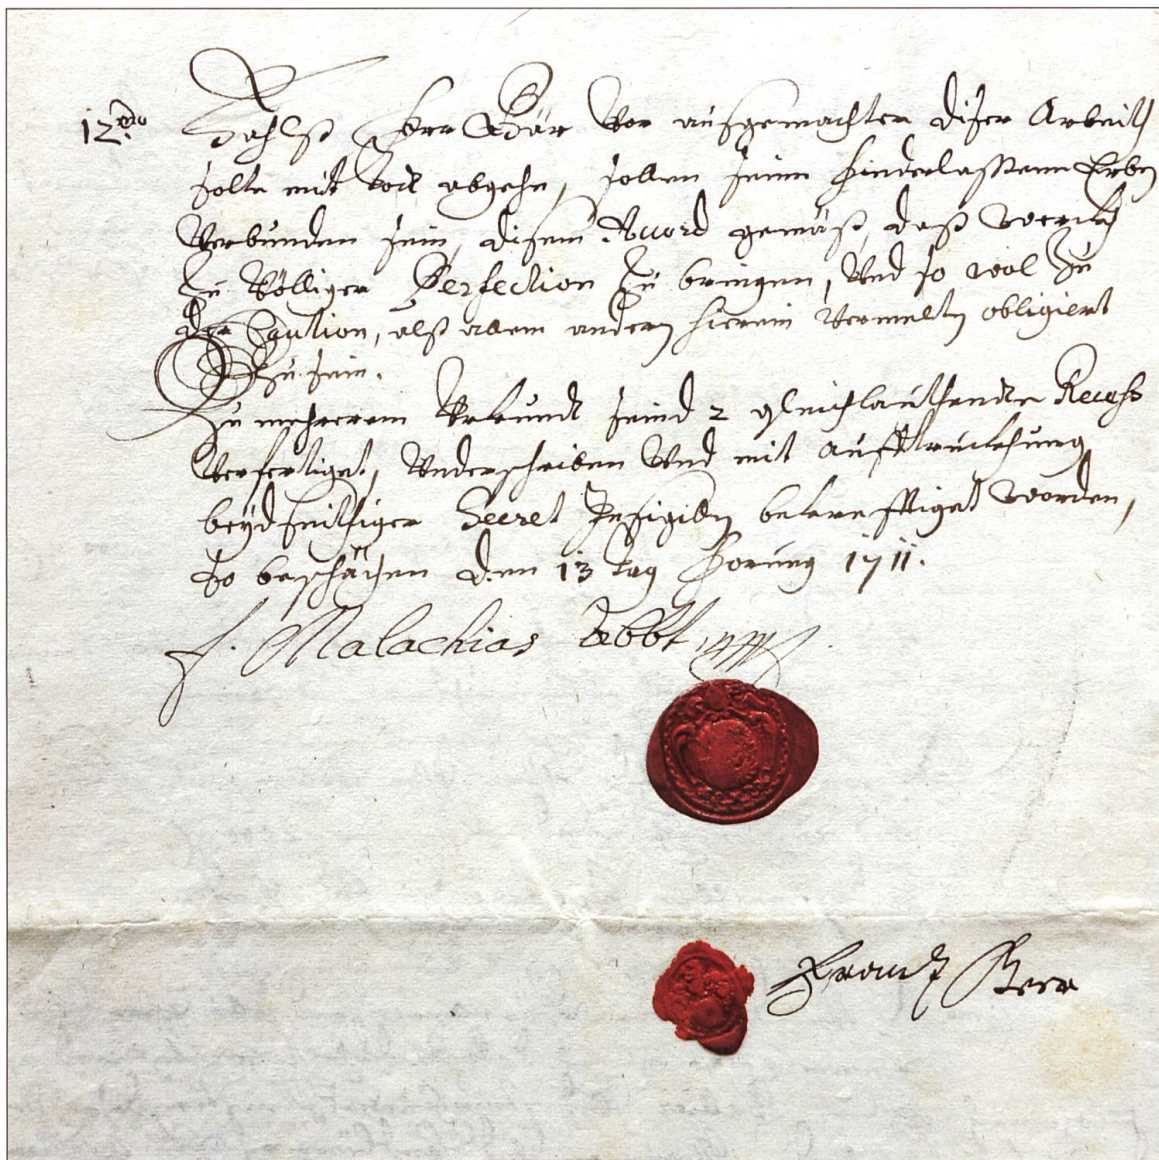 12mo Fahlß Herr Bär vor außgemachter diser Arbeith
solte mit Todt abgehn, sollen seine hinderlassene Erben
Verbunden sein, disem Accord gemäß, daß werckh
Zu Völliger Perfection Zu bringen, Und so wol Zu
der Caution, alß allem andern hierein Vermelten obligiert
Zu sein.
Zu mehrerem Urkundt seind 2 gleichlauthende Recess
Verfertiget, Underschriben Und mit aufftruckhung
beydseithiger Secret Insiglen bekrefftiget worden,
So beschächen den 13 tag Hornung 1711.
f. Malachias Abbt
Frantz Beer